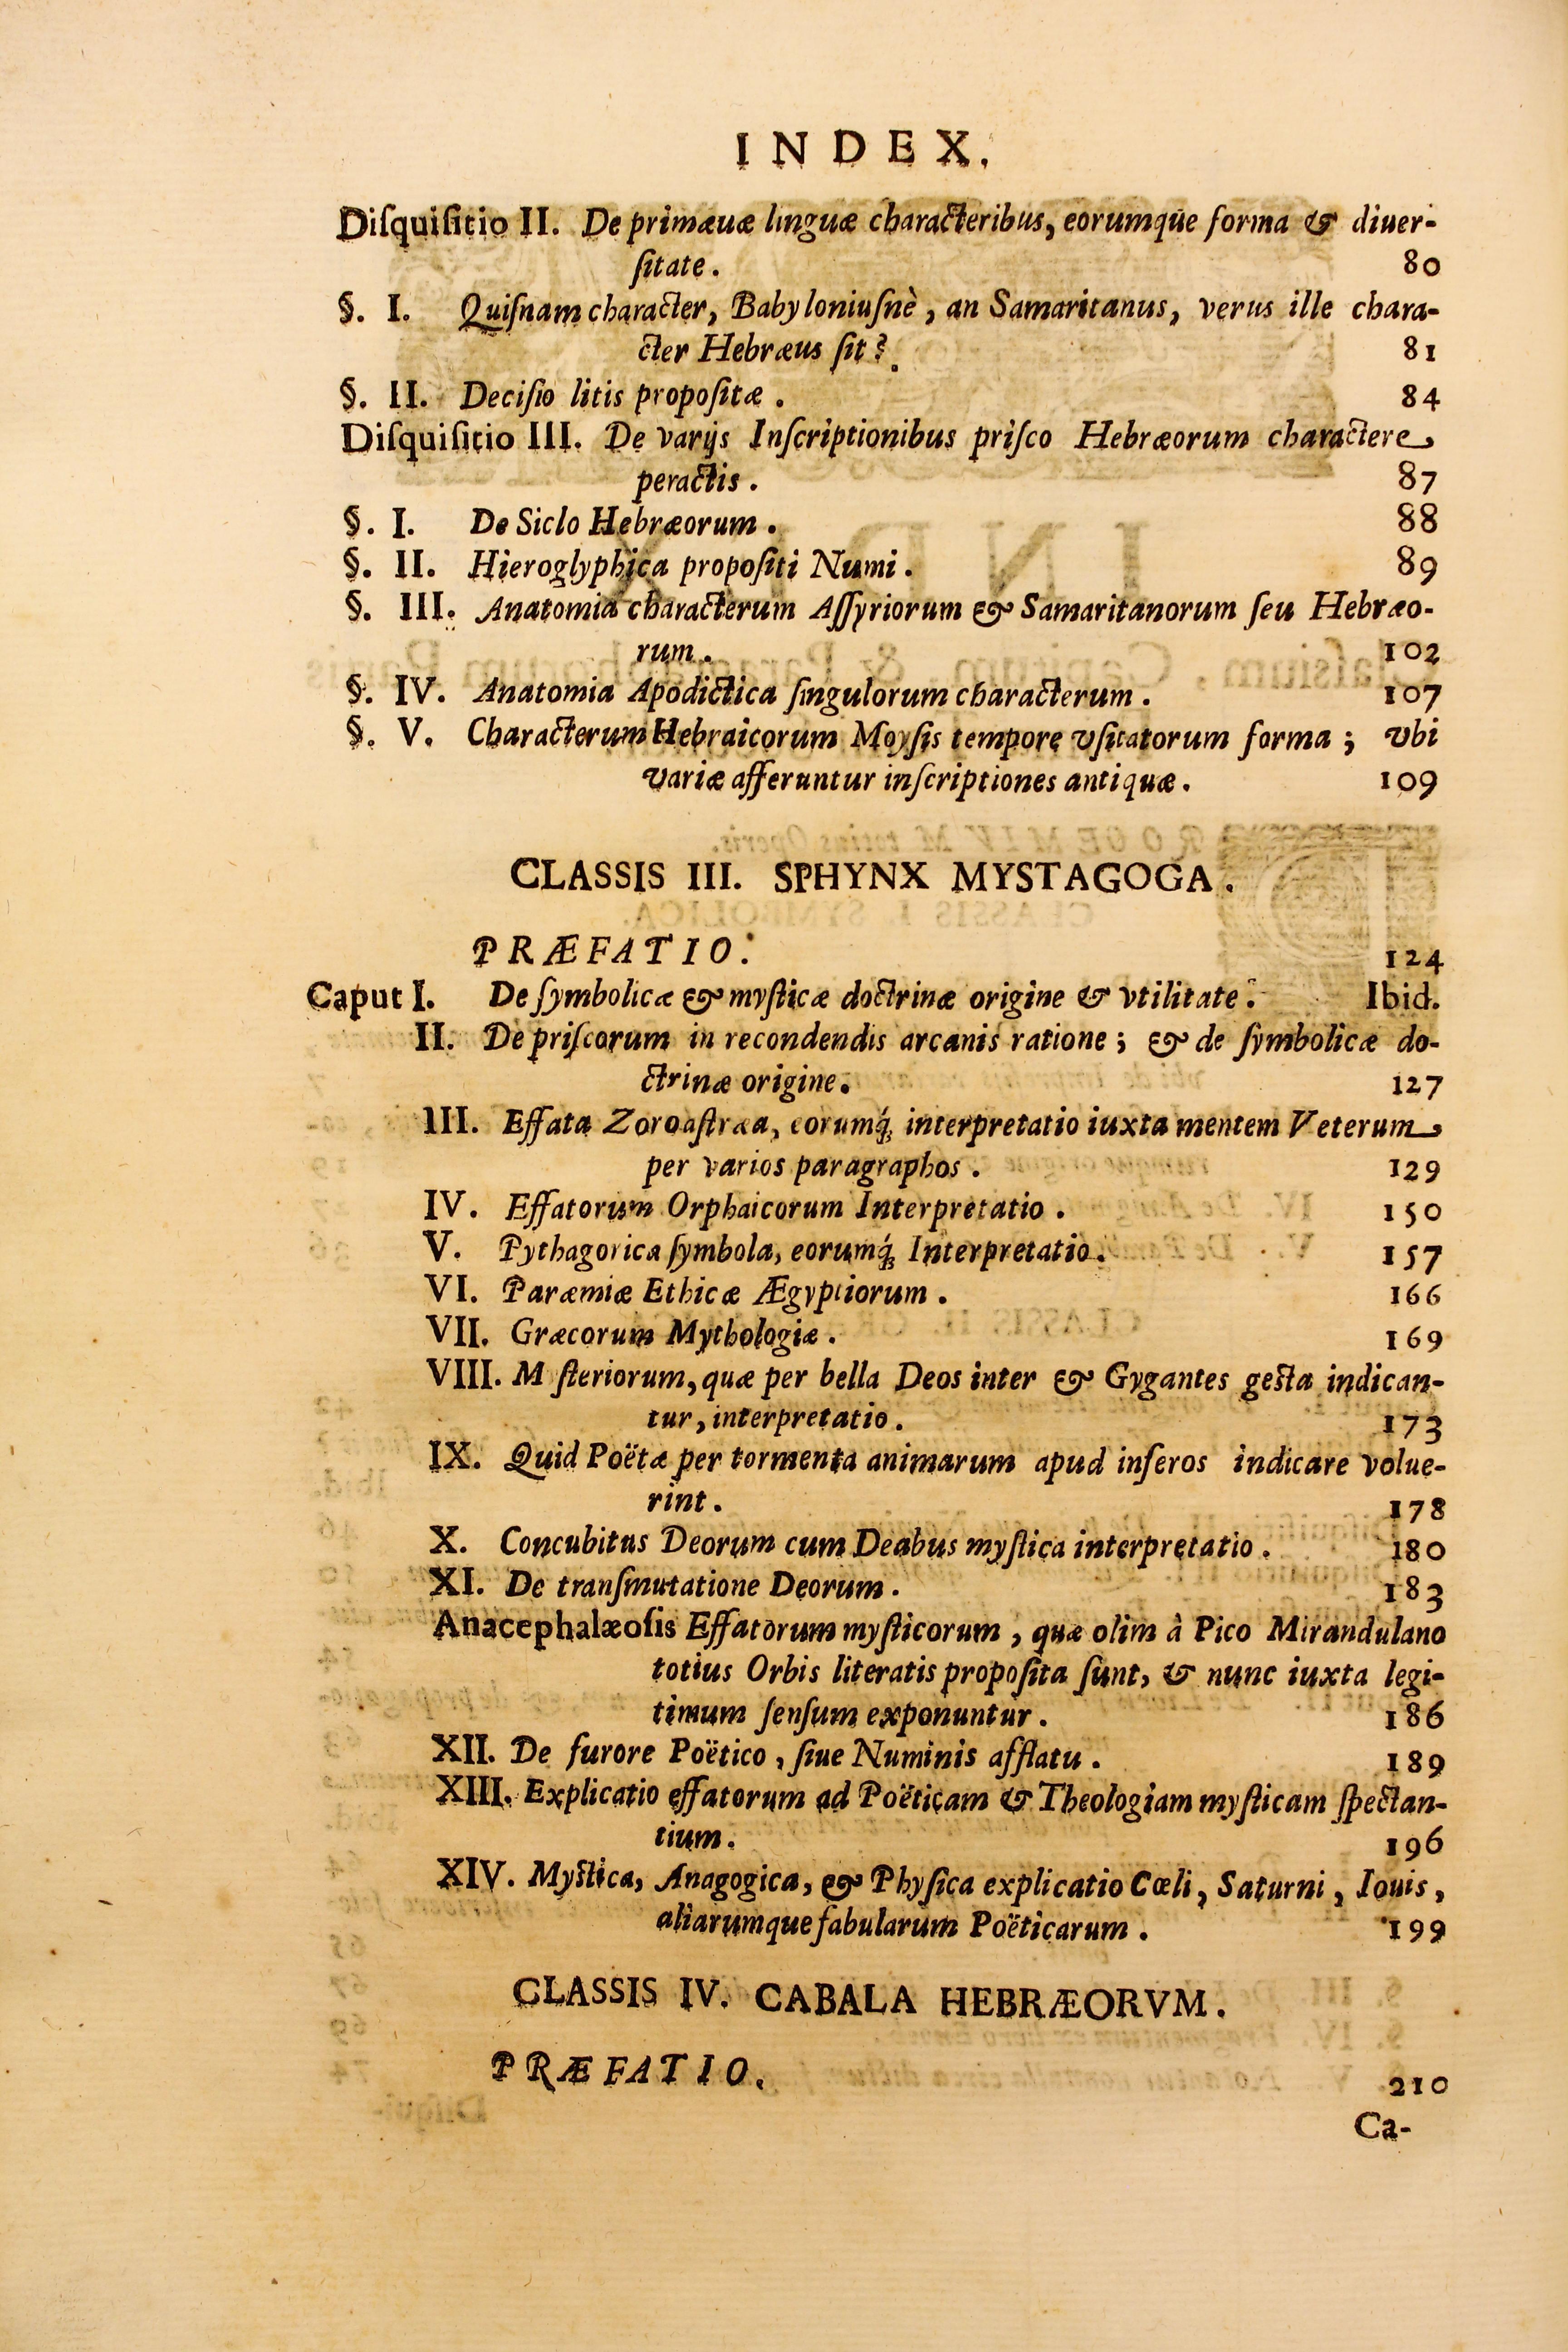 INDEX.
Diſquiſitio II. De primæuæ linguæ characteribus, eorumque forma & diuer-
ſitate. 80
§. I. Quiſnam character, Babyloniuſnè, an Samaritanus, verus ille chara-
cter Hebræus ſit? 81
§. II. Deciſio litis propoſitæ. 84
Diſquiſitio III. De varijs Inſcriptionibus priſco Hebræorum charactere
peractis. 87
§. I. De Siclo Hebræorum. 88
§. II. Hieroglyphica propoſiti Numi. 89
§. III. Anatomia characterum Aſſyriorum & Samaritanorum ſeu Hebræo-
rum. 102
§. IV. Anatomia Apodictica ſingulorum characterum. 107
§. V. Characterum Hebraicorum Moyſis tempore vſitatorum forma; vbi
variæ afferuntur inſcriptiones antiquæ. 109
CLASSIS III. SPHYNX MYSTAGOGA.
PRÆFATIO. 124
Caput I. De ſymbolicæ & myſticæ doctrinæ origine & vtilitate. Ibid.
II. De priſcorum in recondendis arcanis ratione; & de ſymbolicæ do-
ctrinæ origine. 127
III. Effata Zoroaſtræa, eorumq́; interpretatio iuxta mentem Veterum
per varios paragraphos. 129
IV. Effatorum Orphaicorum Interpretatio. 150
V. Pythagorica ſymbola, eorumq́; Interpretatio. 157
VI. Paræmiæ Ethicæ Ægyptiorum. 166
VII. Græcorum Mythologiæ. 169
VIII. M ſteriorum, quæ per bella Deos inter & Gygantes geſta indican-
tur, interpretatio. 173
IX. Quid Poëtæ per tormenta animarum apud inferos indicare volue-
rint. 178
X. Concubitus Deorum cum Deabus myſtica interpretatio. 180
XI. De tranſmutatione Deorum. 183
Anacephalæoſis Effatorum myſticorum, quæ olim à Pico Mirandulano
totius Orbis literatis propoſita ſunt, & nunc iuxta legi-
timum ſenſum exponuntur. 186
XII. De furore Poëtico, ſiue Numinis afflatu. 189
XIII. Explicatio effatorum ad Poëticam & Theologiam myſticam ſpectan-
tium. 196
XIV. Myſtica, Anagogica, & Phyſica explicatio Cœli, Saturni, Iouis,
aliarumque fabularum Poëticarum. 199
CLASSIS IV. CABALA HEBRÆORVM.
PRÆFATIO. 210
Ca-